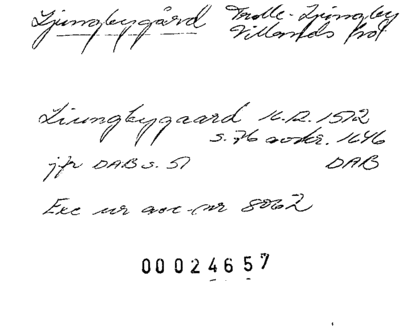 Ljungbygård Trolle-Ljungby
Villands hd
Liungbygaard 16.12.1572
s.76 avskr. 1646
jfr DAB s. 51 DAB
Exc ur acc-nr 8062
00024657